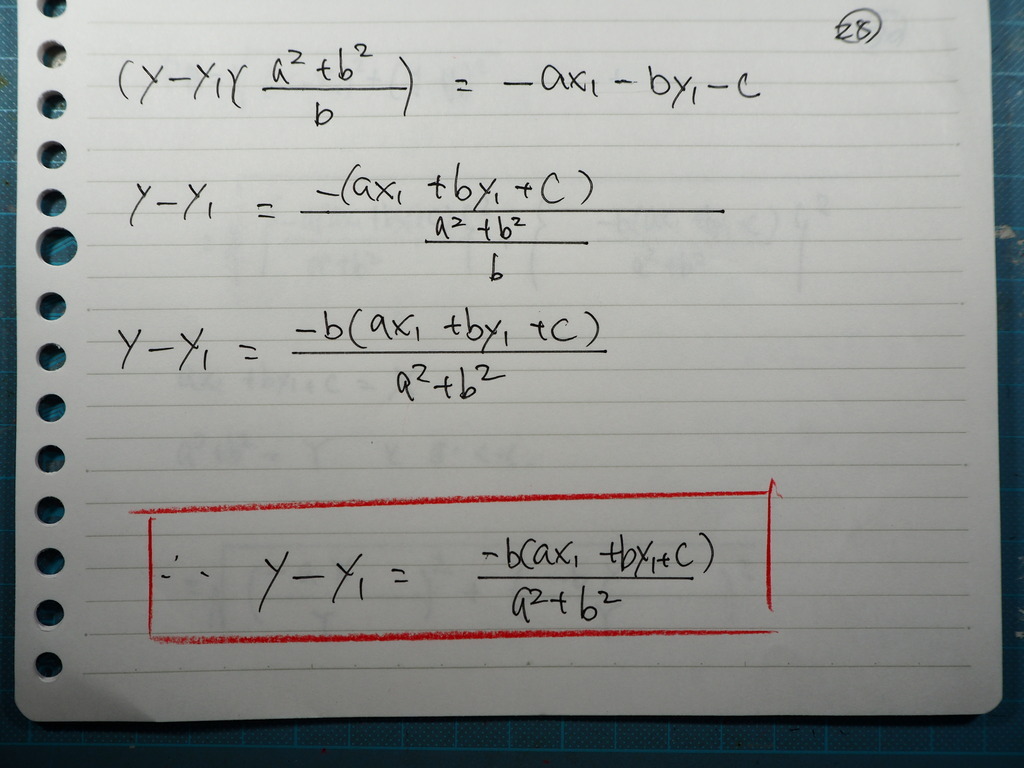 28
(y-y₁)((a²+b²)/b) = -ax₁-by₁-c
y-y₁ = -(ax₁+by₁+c)/((a²+b²)/b)
y-y₁ = -b(ax₁+by₁+c)/(a²+b²)
∴ y-y₁ = -b(ax₁+by₁+c)/(a²+b²)